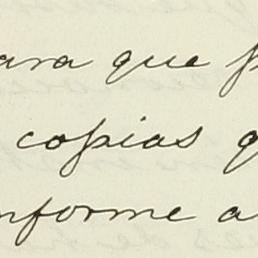 ara que p
copias q
nforme a